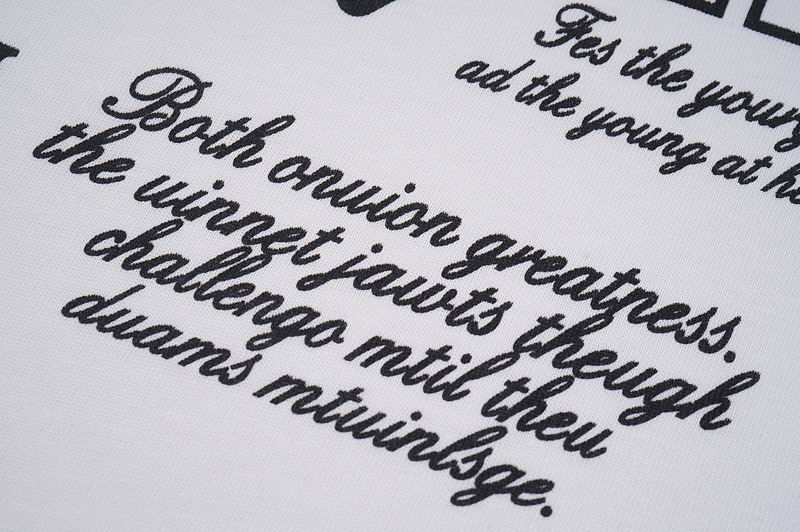 Fes the young
ad the young at
Both onwion greatness.
the winnet jawts theugh
challengo mtil theu
duams mtuinlsge.